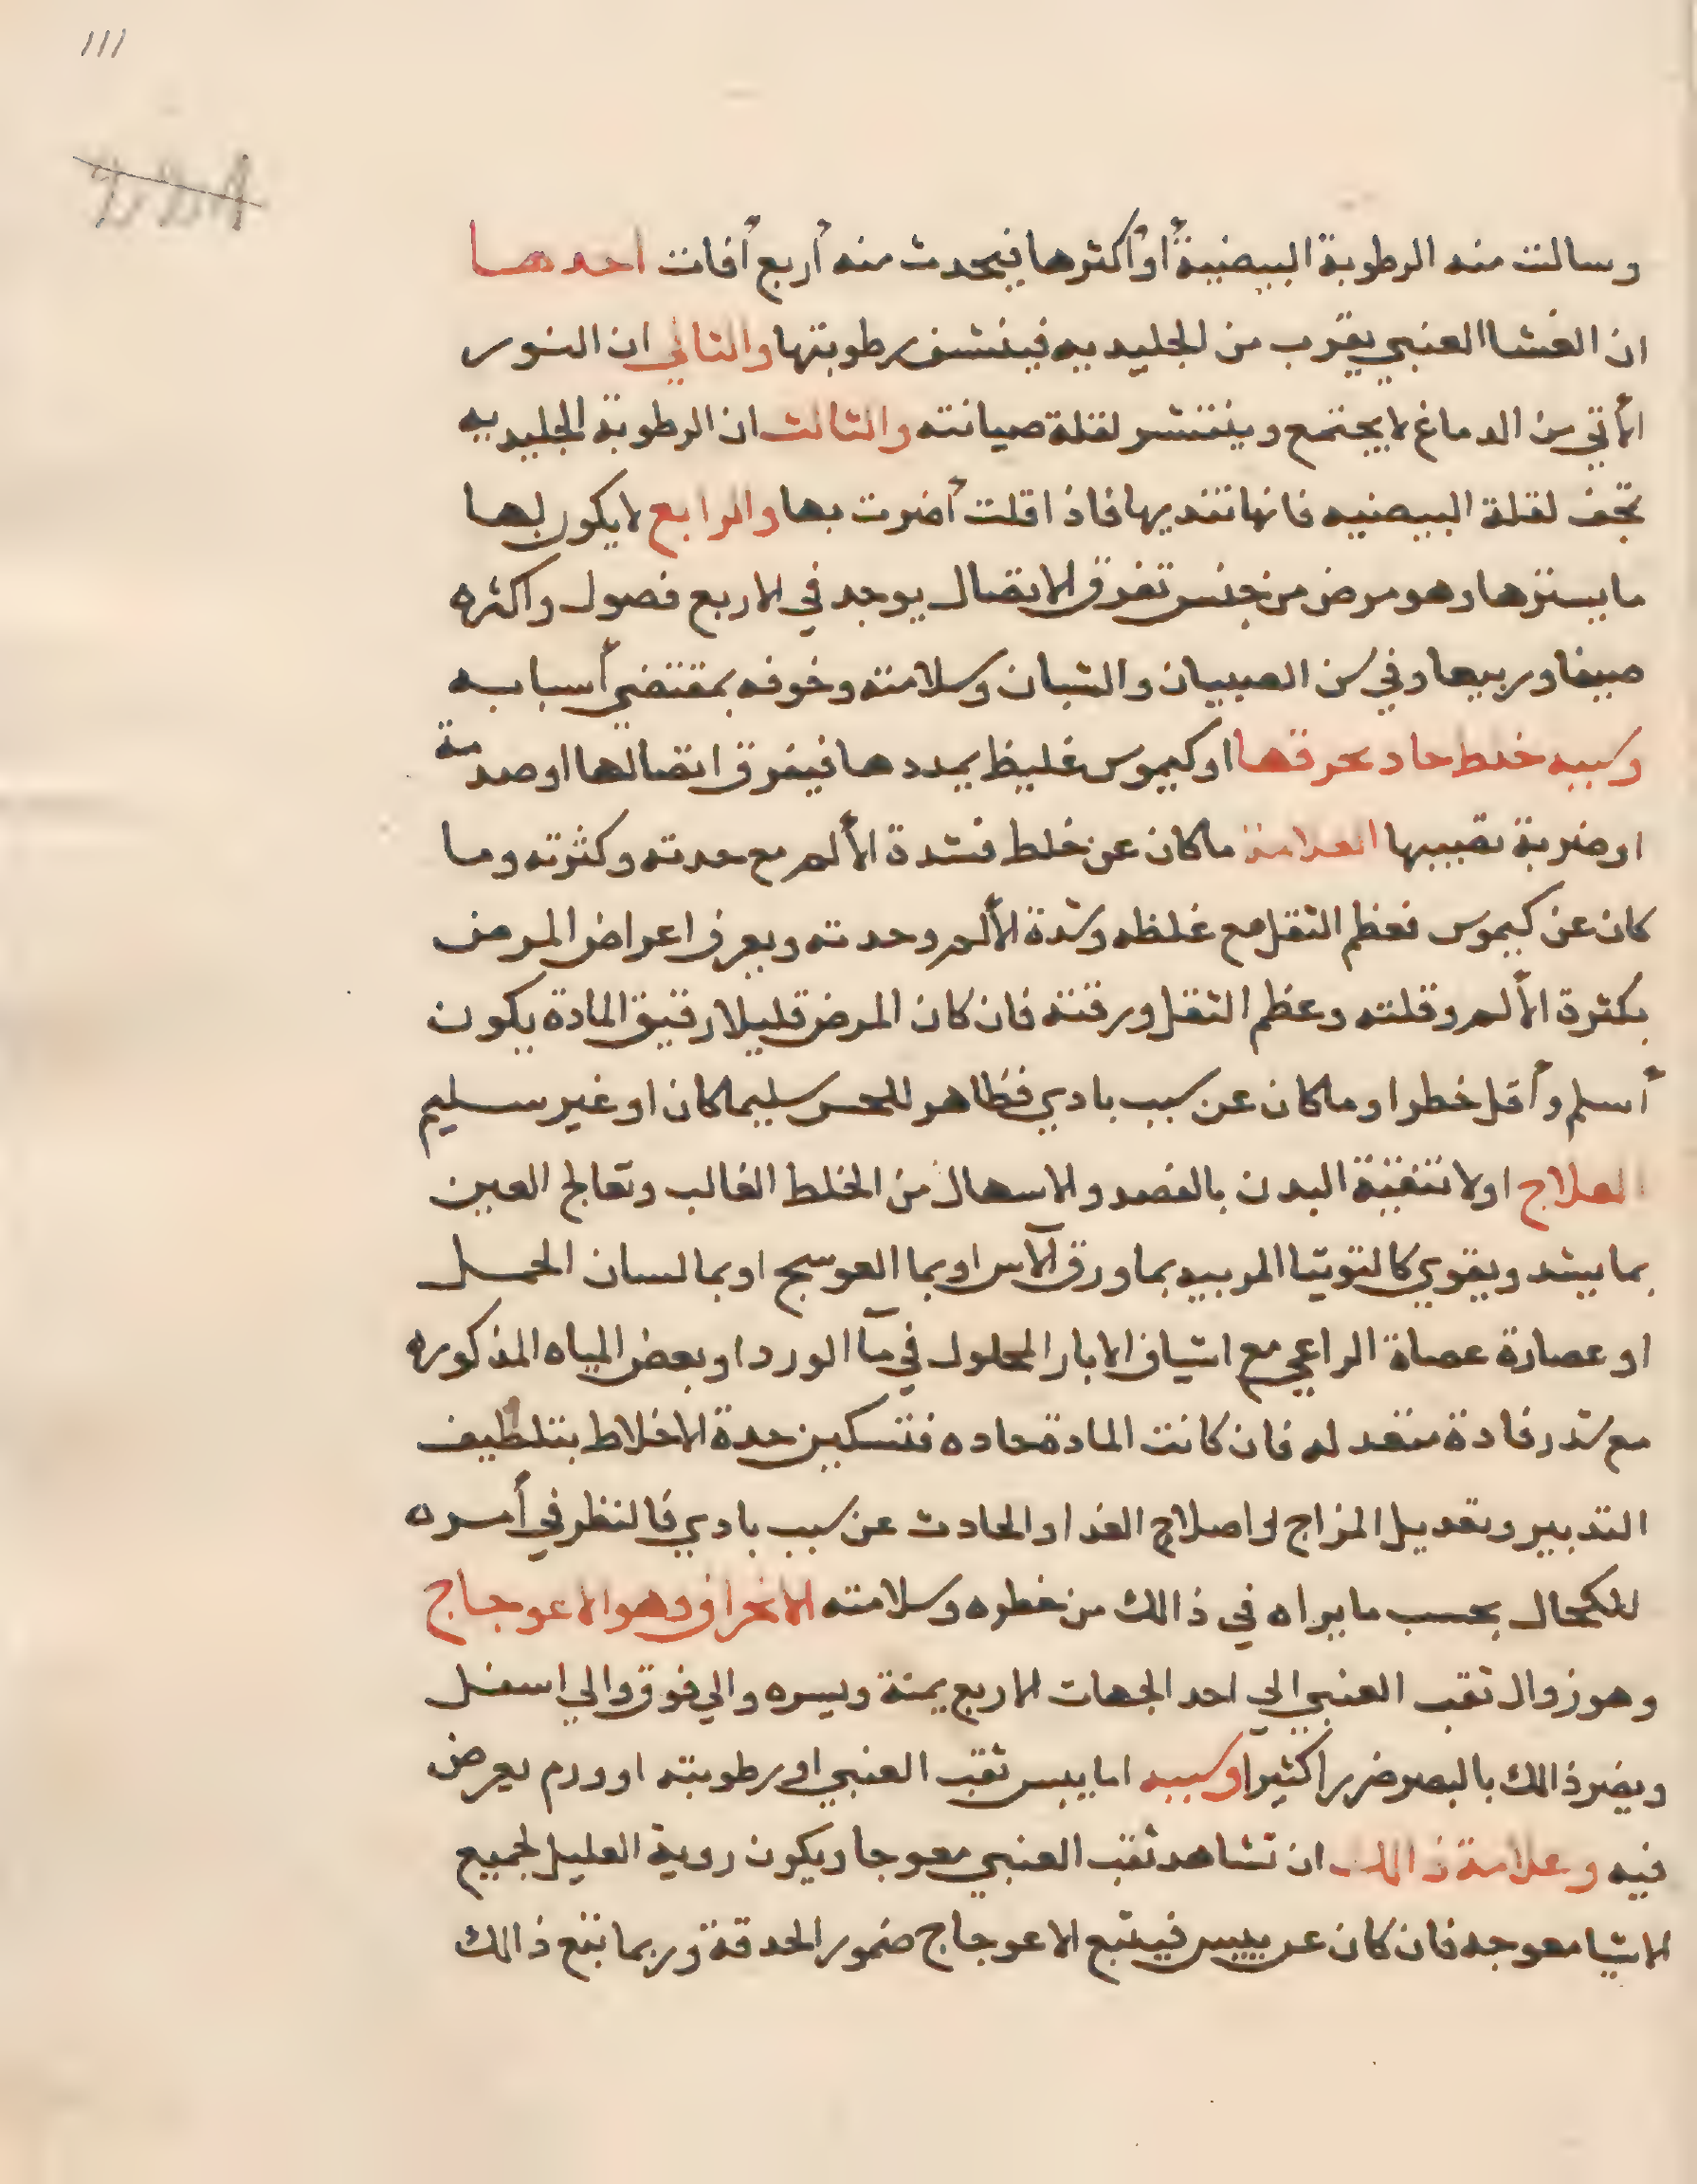 111
وسالت منه الرطوبة البيضية أو أكثرها فيحدث منه أربع أفات احدها
ان الغشا العنبي يقرب من الجليديه فينشف رطوبتها والثاني ان النور
الأتي من الدماغ لا يجتمع وينتشر لقلة صيانته والثالث ان الرطوبة الجليديه
تجف لقلة البيضيه فانها تنديها فاذا قلت أضرت بها والرابع لا يكون لها
ما يسترها وهو مرض من جنس تفرق الاتصال يوجد في الاربع فصول واكثره
صيفا وربيعا وفي سن الصبيان والشبان وسلامته وخوفه بمقتضي أسبابه
وسببه خلط حاد يحرقها او كيموس غليظ يمددها فيفرق اتصالها او صدمة
او ضربة تصيبها العلامة ما كان عن خلط فشدة الألم مع حدته وكثرته وما
كان عن كيموس فعظم الثقل مع غلظه وشدة الألم وحدته ويعرف اعراض المرض
بكثرة الألم وقلته وعظم الثقل ورقته فان كان المرض قليلا رقيق المادة يكون
أسلم وأقل خطرا وما كان عن سبب بادي فظاهر للحس سليما كان او غير سليم
العلاج اولا تنقية البدن بالفصد والاسهال من الخلط الغالب وتعالج العين
بما يشد ويقوي كالتوتيا المربيه بما ورق الآس او بما العوسج او بما لسان الحمل
او عصارة عصاة الراعي مع اشياف الابار المحلول في مآ الورد او بعض المياه المذكوره
مع شد رفادة منقد له فان كانت المادة حاده فتسكين حدة الاخلاط بتلطيف
التدبير وتعديل المزاج او اصلاح الغدا والحادث عن سبب بادي فالنظر في أمره
للكحال بحسب ما يراه في ذالك من خطره وسلامته الانحراف وهو الاعوجاج
وهو زوال ثقب العنبي الي احد الجهات الاربع يمنة ويسره والي فوق والي اسفل
ويضر ذالك بالبصر ضررا كثيرا وسببه اما يبس ثقب العنبي او رطوبته او ورم يعرض
فيه وعلامة ذالك ان تشاهد ثقب العنبي معوجا ويكون روية العليل لجميع
الاشيا معوجه فان كان عن يبس فيتبع الاعوجاج ضمور الحدقة وربما تبع ذالك